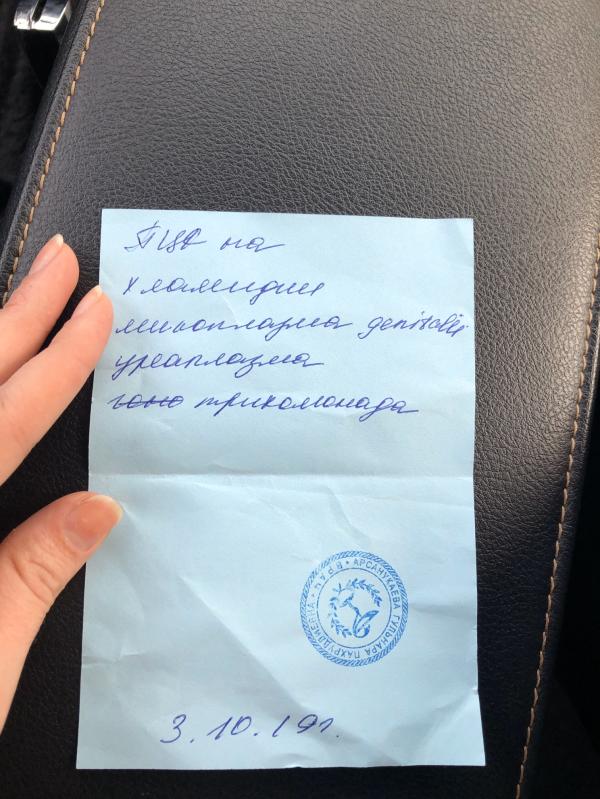 ПЦР на
хламидии
микоплазма genitalis
уреаплазма
гоно трихомонада
ВРАЧ • АРСАНУКАЕВА ГУЛЬНАРА ПАХРУДИНОВНА •
3.10.19г.